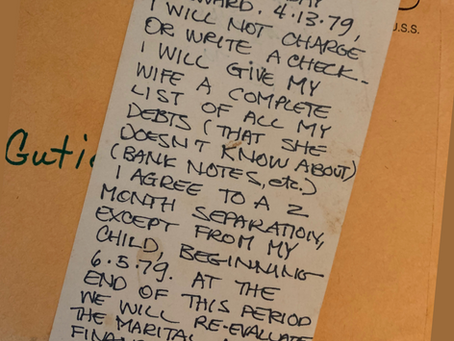 4.13.79,
I WILL NOT CHARGE
OR WRITE A CHECK-
I WILL GIVE MY
WIFE A COMPLETE
LIST OF ALL MY
DEBTS (THAT SHE
DOESN'T KNOW ABOUT)
(BANK NOTES, etc.)
I AGREE TO A 2
MONTH SEPARATION,
EXCEPT FROM MY
CHILD, BEGINNING
6.5.79. AT THE
END OF THIS PERIOD
WE WILL RE-EVALUATE
THE MARITAL
U.S.S.